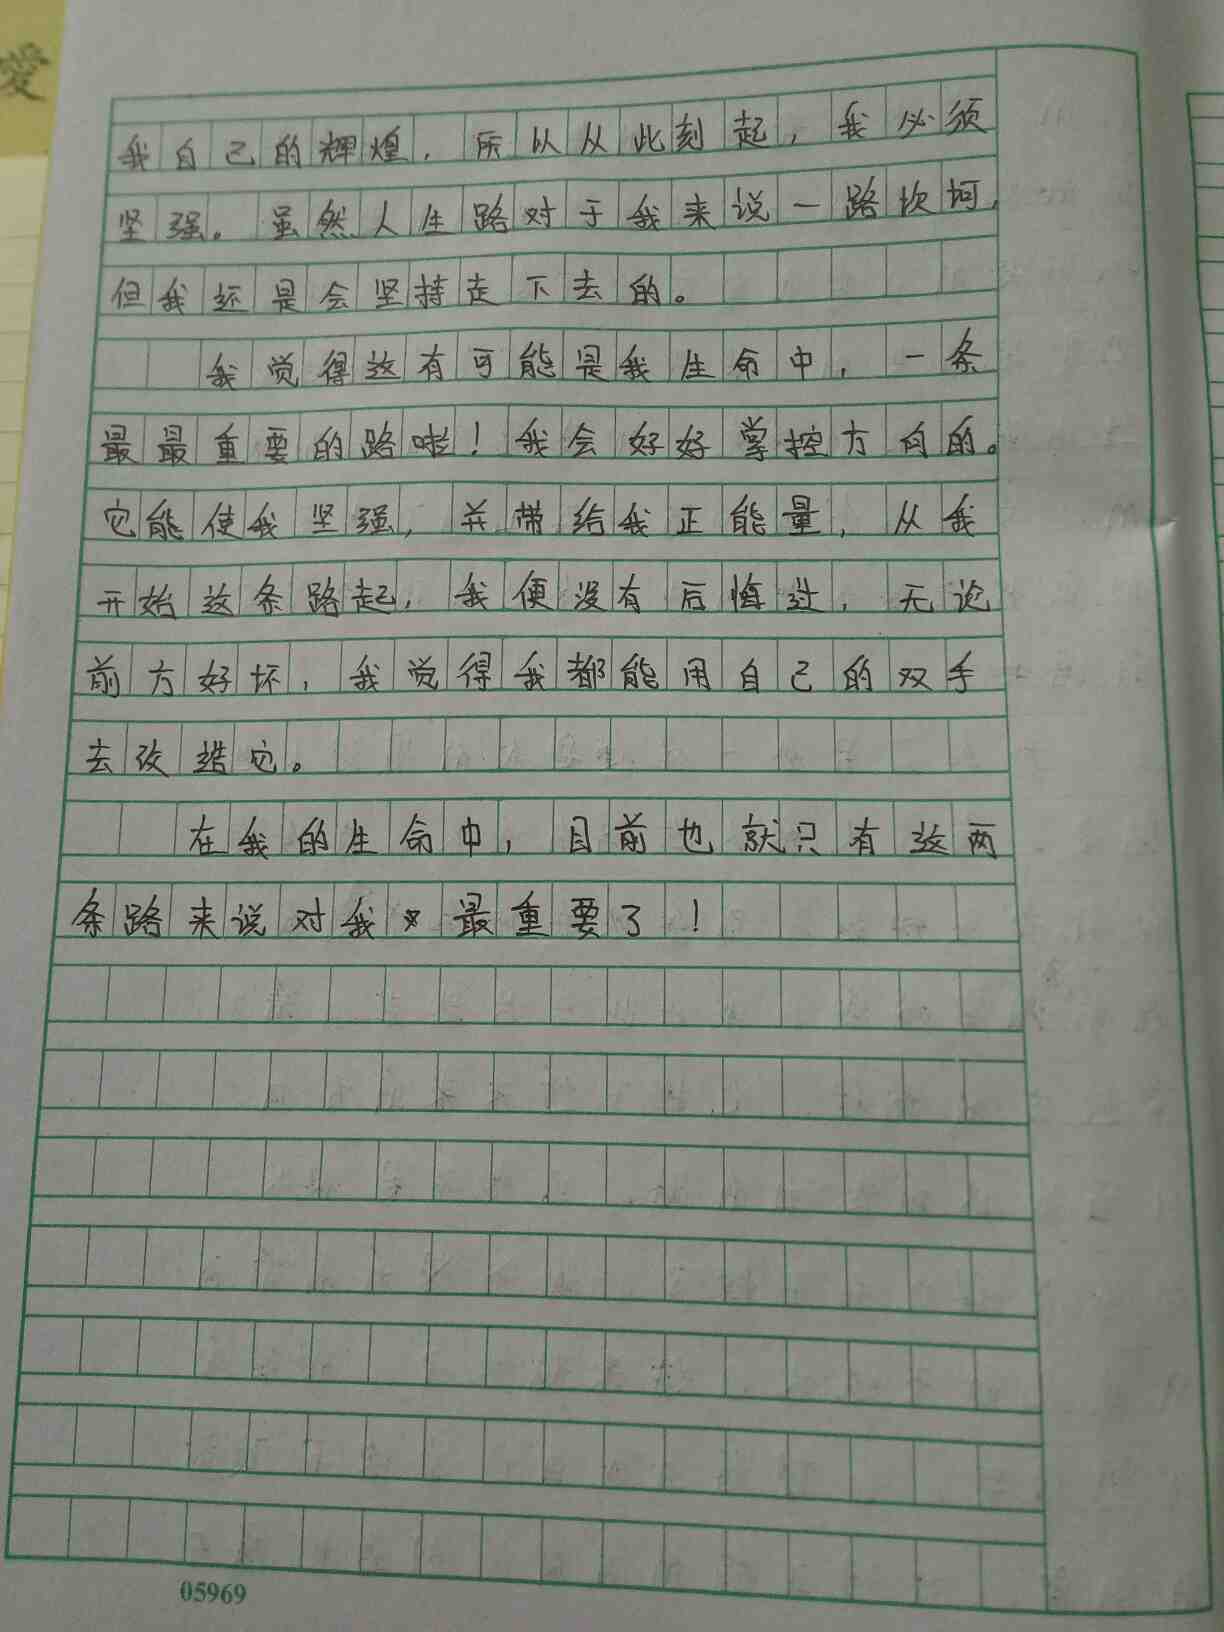 愛
我自己的辉煌，所以从从此刻起，我必须
坚强。虽然人生路对于我来说一路坎坷，
但我还是会坚持走下去的。
我觉得这有可能是我生命中，一条
最最重要的路啦！我会好好掌控方向的。
它能使我坚强，并带给我正能量，从我
开始这条路起，我便没有后悔过，无论
前方好坏，我觉得我都能用自己的双手
去改造它。
在我的生命中，目前也就只有这两
条路来说对我最重要了！
05969